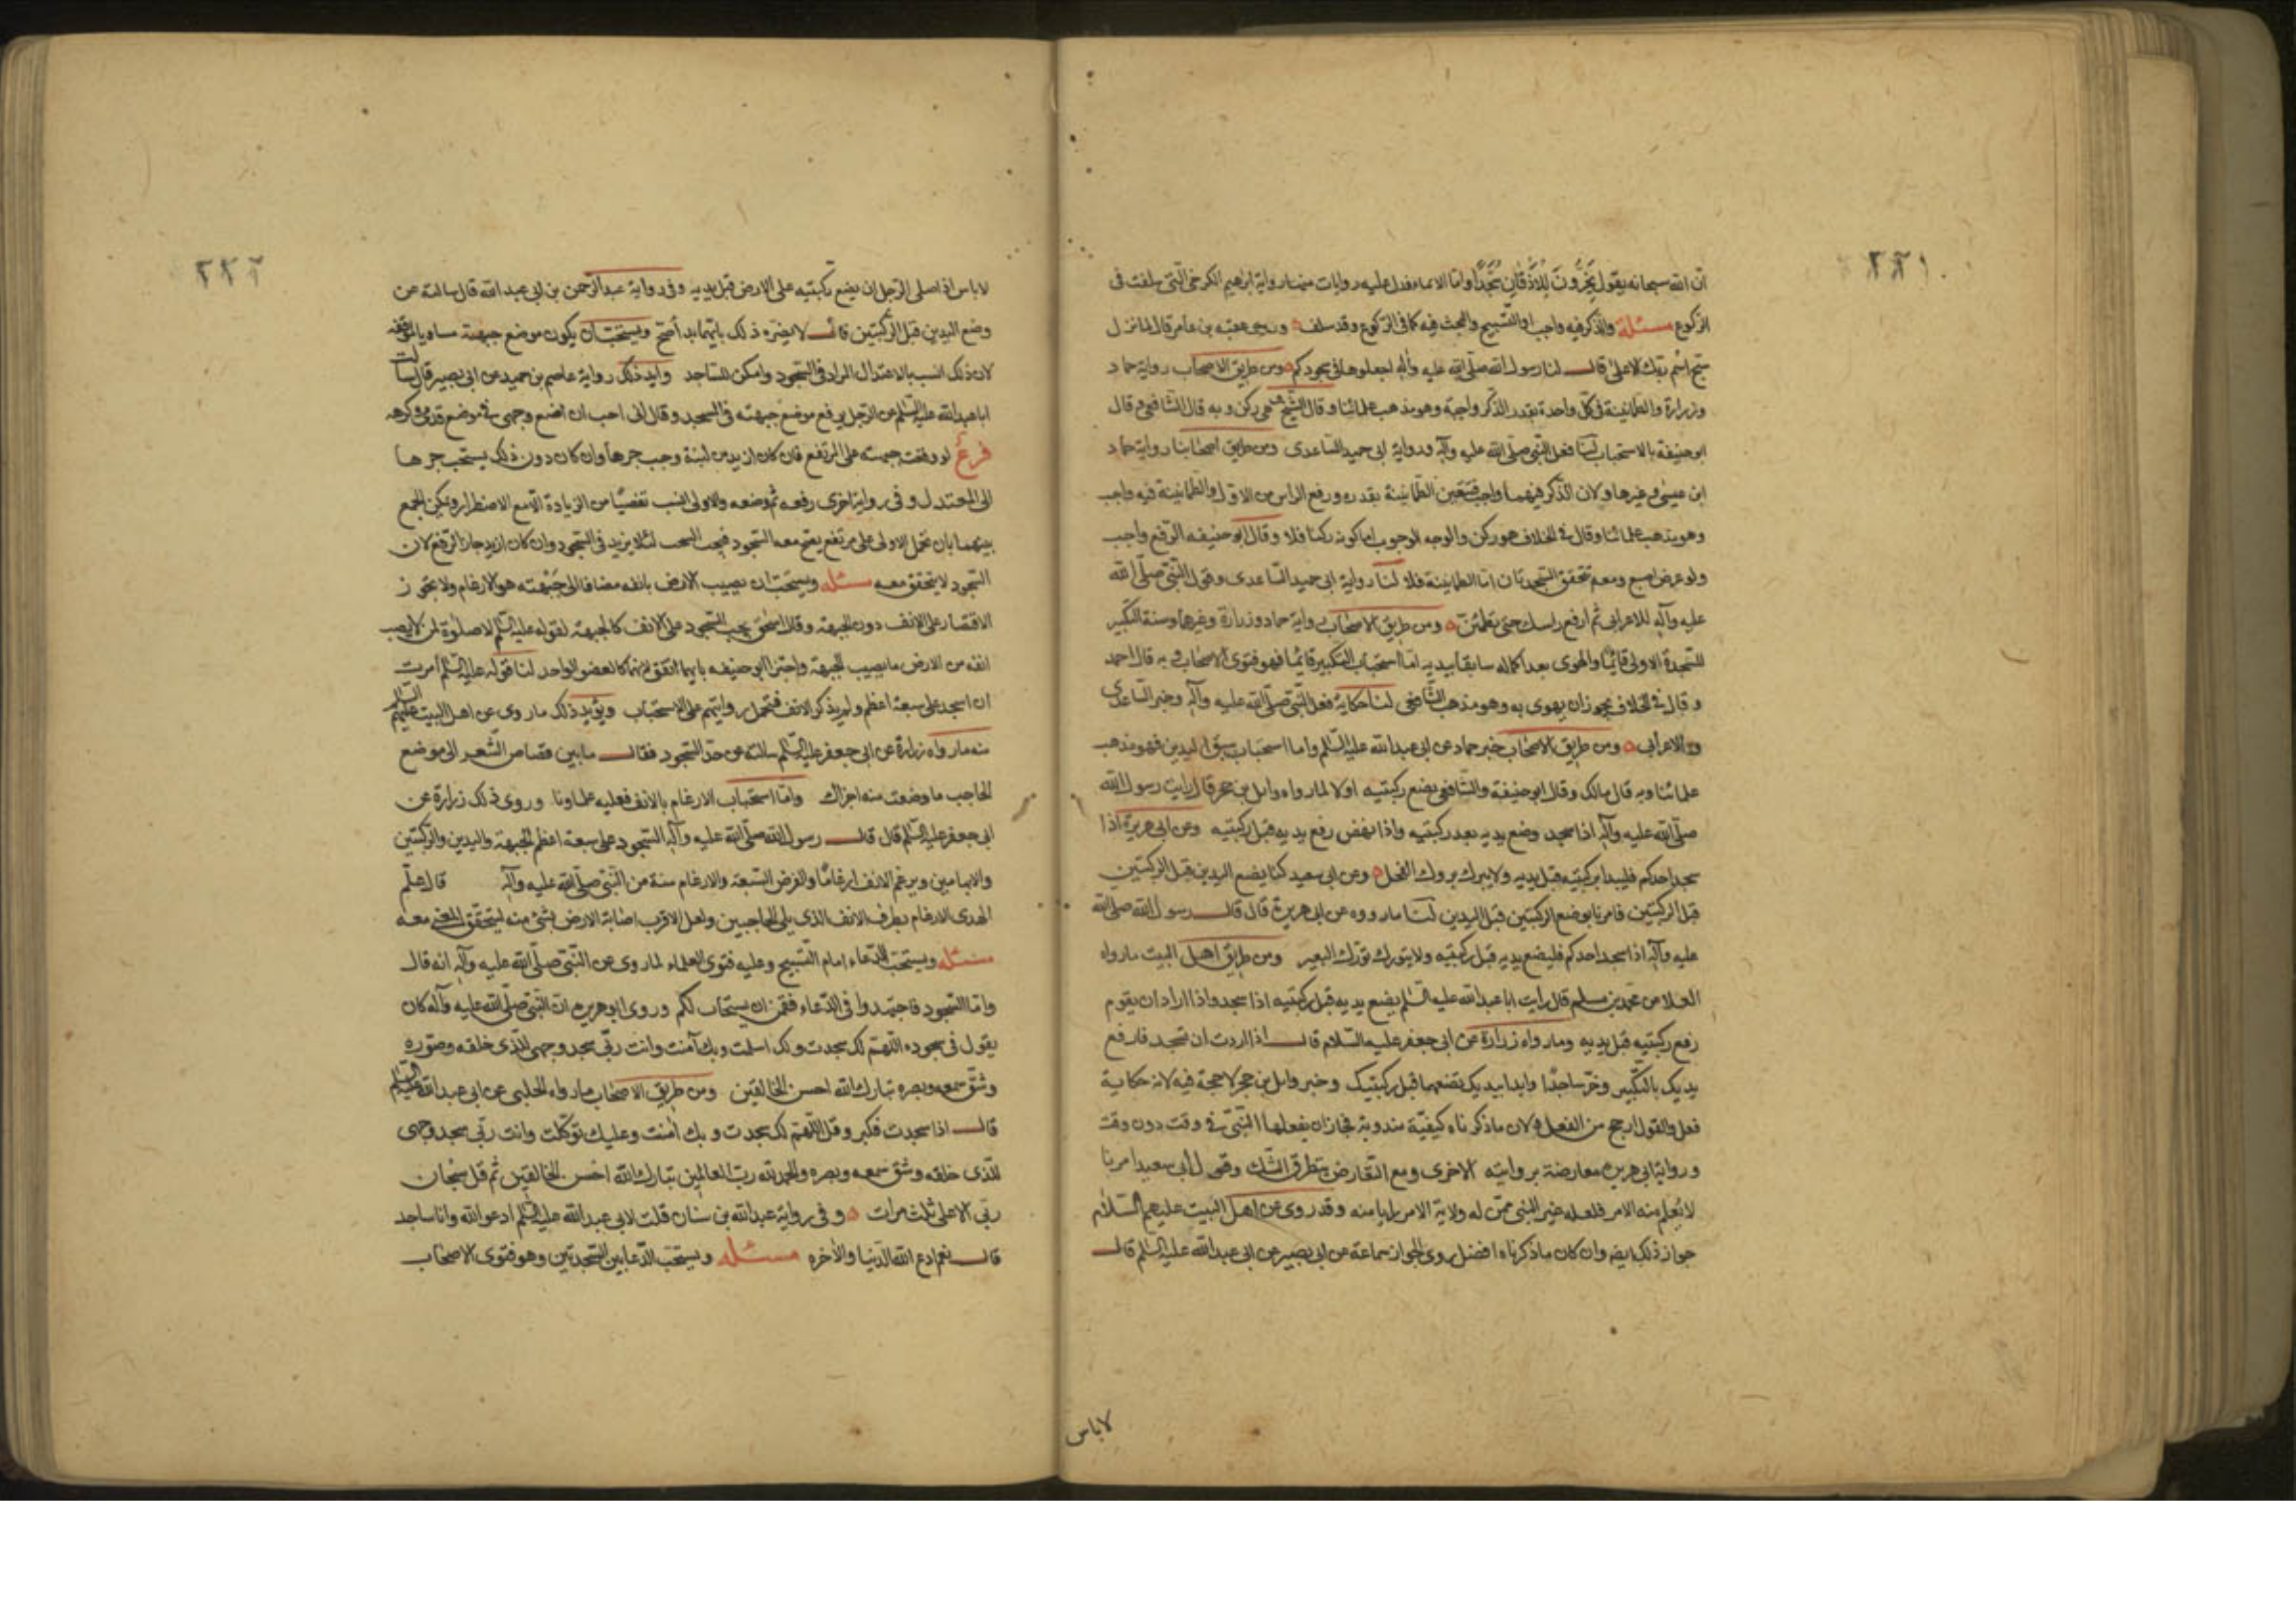 ٢٢١
ان الله سبحانه يقول يَخِرُّونَ لِلْأَذْقَانِ سُجَّدًا واما الايماء فدل عليه روايات منها رواية ابرهيم الكرخى التى سلفت فى
الركوع مسئلة والذكر فيه واجب او التسبيح والبحث فيه كما فى الركوع وقد سلف وروى عقبة بن عامر قال لما نزل
سبح اسم ربك الاعلى قال لنا رسول الله صلى الله عليه وآله اجعلوها فى سجودكم ومن طريق الاصحاب رواية حماد
وزرارة والطمانينة فى كل واحدة بقدر الذكر واجبة وهو مذهب علمائنا وقال الشيخ هى ركن وبه قال الشافعى وقال
ابوحنيفة بالاستحباب لنا فعل النبى صلى الله عليه وآله ورواية ابى حميد الساعدى ومن طريق اصحابنا رواية حماد
ابن عيسى وغيرها ولان الذكر فيهما واجب فتتعين الطمانينة بقدره ورفع الراس من الاول والطمانينة فيه واجب
وهو مذهب علمائنا وقال فى الخلاف هو ركن والوجه الوجوب اما كونه ركنا فلا وقال ابوحنيفه الرفع واجب
ولو عرض اصبع ومعه تتحقق السجدتان اما الطمانينة فلا لنا رواية ابى حميد الساعدى وقول النبى صلى الله
عليه وآله للاعرابى ثم ارفع راسك حتى تطمئن ومن طريق الاصحاب رواية حماد وزرارة وغيرهما وسنة التكبير
للسجدة الاولى قائما والهوى بعد اكماله سابقا بيديه اما استحباب التكبير قائما فهو فتوى الاصحاب وبه قال احمد
وقال فى الخلاف يجوز ان يهوى به وهو مذهب الشافعى لنا حكاية فعل النبى صلى الله عليه وآله وخبر الساعدى
والاعرابى ومن طريق الاصحاب خبر حماد عن ابى عبد الله عليه السلم واما استحباب سبق اليدين فهو مذهب
علمائنا وبه قال مالك وقال ابو حنيفة والشافعى يضع ركبتيه اولا لما رواه وايل بن حجر قال رايت رسول الله
صلى الله عليه وآله اذا سجد وضع يديه بعد ركبتيه واذا نهض رفع يديه قبل ركبتيه وعن ابى هريرة اذا
سجد احدكم فليبدا بركبتيه قبل يديه ولا يبرك بروك الفحل وعن ابى سعيد كنا نضع اليدين قبل الركبتين
قبل الركبتين فامرنا بوضع الركبتين قبل اليدين لنا ما رووه عن ابى هريرة قال قال رسول الله صلى الله
عليه وآله اذا سجد احدكم فليضع يديه قبل ركبتيه ولا يتورك تورك البعير ومن طريق اهل البيت ما رواه
العلا عن محمد بن مسلم قال رايت ابا عبد الله عليه السلم يضع يديه قبل ركبتيه اذا سجد واذا اراد ان يقوم
رفع ركبتيه قبل يديه وما رواه زرارة عن ابى جعفر عليه السلام قال اذا اردت ان تسجد فارفع
يديك بالتكبير وخر ساجدا وابدا بيديك تضعهما قبل ركبتيك وخبر وايل بن حجر لا حجة فيه لانه حكاية
فعل والقول ارجح من الفعل ولان ما ذكرناه كيفية مندوبة فجاز ان يفعلها النبى فى وقت دون وقت
ورواية ابى هريره معارضة بروايته الاخرى ومع التعارض يتطرق الشك وقول ابى سعيد امرنا
لا يعلم منه الامر فلعله غير النبى ممن له ولاية الامر بامنه وقد روى عن اهل البيت عليهم السلام
جواز ذلك ايضا وان كان ما ذكرناه افضل روى الجواز سماعة عن ابى بصير عن ابى عبد الله عليه السلم قال
لاباس
٢٢٢
لا باس اذا صلى الرجل ان يضع ركبتيه على الارض قبل يديه وفى رواية عبد الرحمن بن ابى عبد الله قال سالته عن
وضع اليدين قبل الركبتين قال لا يضره ذلك بايهما بدا صح ويستحب ان يكون موضع جبهته مساويا لموقفه
لان ذلك انسب بالاعتدال المراد فى السجود وامكن للساجد وايد ذلك رواية عاصم بن حميد عن ابى بصير قال سالت
ابا عبد الله عليه السلم عن الرجل يرفع موضع جبهته فى المسجد وقال انى احب ان اضع وجهى فى موضع قدمى وكرهه
فرع لو وقعت جبهته على المرتفع فان كان ازيد من لبنة وجب جرها وان كان دون ذلك يستحب جرها
الى المعتدل وفى رواية اخرى رفعه ثم وضعه والاولى انسب تفصيا من الزيادة الا مع الاضطرار ويمكن الجمع
بينهما بان تحمل الاولى على مرتفع يصح معه السجود فيجب السحب لئلا يزيد فى السجود وان كان ازيد جاز الرفع لان
السجود لا يتحقق معه مسئله ويستحب ان يصيب الارض بانفه مضافا الى جبهته هو الارغام ولا يجوز
الاقتصار على الانف دون الجبهة وقال اسحق يجب السجود على الانف كالجبهة لقوله عليه السلم لا صلوة لمن لا يصب
انفه من الارض ما يصيب الجبهة واجتزا ابو حنيفه بايهما اتفق لانهما كالعضو الواحد لنا قوله عليه السلم امرت
ان اسجد على سبعة اعظم ولم يذكر الانف فتحمل روايتهم على الاستحباب ويؤيد ذلك ما روى عن اهل البيت عليهم السلام
منه ما رواه زرارة عن ابى جعفر عليه السلم سالته عن حد السجود فقال ما بين قصاص الشعر الى موضع
الحاجب ما وضعت منه اجزاك واما استحباب الارغام بالانف فعليه علماونا وروى ذلك زرارة عن
ابى جعفر عليه السلم قال قال رسول الله صلى الله عليه وآله السجود على سبعة اعظم الجبهة واليدين والركبتين
والابهامين ويرغم الانف ارغاما والفرض السبعة والارغام سنة من النبى صلى الله عليه وآله قال علم
الهدى الارغام بطرف الانف الذى يلى الحاجبين ولعل الاقرب اصابة الارض بشئ منه لتحقق المعنى معه
مسئله ويستحب الدعاء امام التسبيح وعليه فتوى العلماء لما روى عن النبى صلى الله عليه وآله انه قال
واما السجود فاجتهدوا فى الدعاء فقمن ان يستجاب لكم وروى ابو هريره ان النبى صلى الله عليه وآله كان
يقول فى سجوده اللهم لك سجدت ولك اسلمت وبك آمنت وانت ربى سجد وجهى للذى خلقه وصوره
وشق سمعه وبصره تبارك الله احسن الخالقين ومن طريق الاصحاب ما رواه الحلبى عن ابى عبد الله عليه السلم
قال اذا سجدت فكبر وقل اللهم لك سجدت وبك امنت وعليك توكلت وانت ربى سجد وجهى
للذى خلقه وشق سمعه وبصره والحمد لله رب العالمين تبارك الله احسن الخالقين ثم قل سبحان
ربى الاعلى ثلث مرات وفى رواية عبد الله بن سنان قلت لابى عبد الله عليه السلم ادعو الله وانا ساجد
قال نعم ادع الله الدنيا والاخره مسئله ويستحب الدعا بين السجدتين وهو فتوى الاصحاب